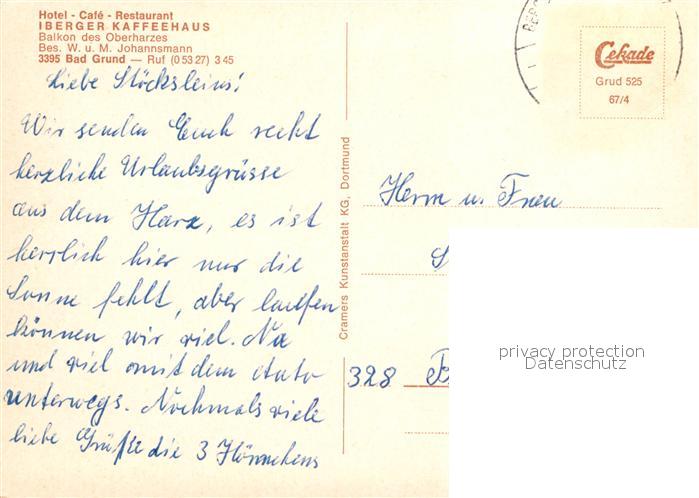 Hotel - Café - Restaurant
IBERGER KAFFEEHAUS
Balkon des Oberharzes
Bes. W. u. M. Johannsmann
3395 Bad Grund — Ruf (0 53 27) 3 45
Liebe Stöcksleins!
Wir senden Euch recht
herzliche Urlaubsgrüsse
aus dem Harz, es ist
herrlich hier nur die
Sonne fehlt, aber laufen
können wir viel. Na
und viel mit dem Auto
unterwegs. Nochmals viele
liebe Grüße die 3 Hönnchens
Cramers Kunstanstalt KG, Dortmund
Cekade
Grud 525
67/4
Herrn u. Frau
S
328 B
privacy protection
Datenschutz